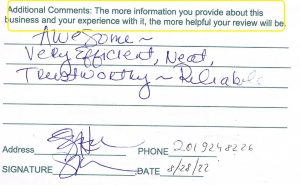 Additional Comments: The more information you provide about this
business and your experience with it, the more helpful your review will be.
Awesome~
Very Efficient, Neat,
Trustworthy ~ Reliable
Address PHONE 2019248226
SIGNATURE DATE 8/28/22